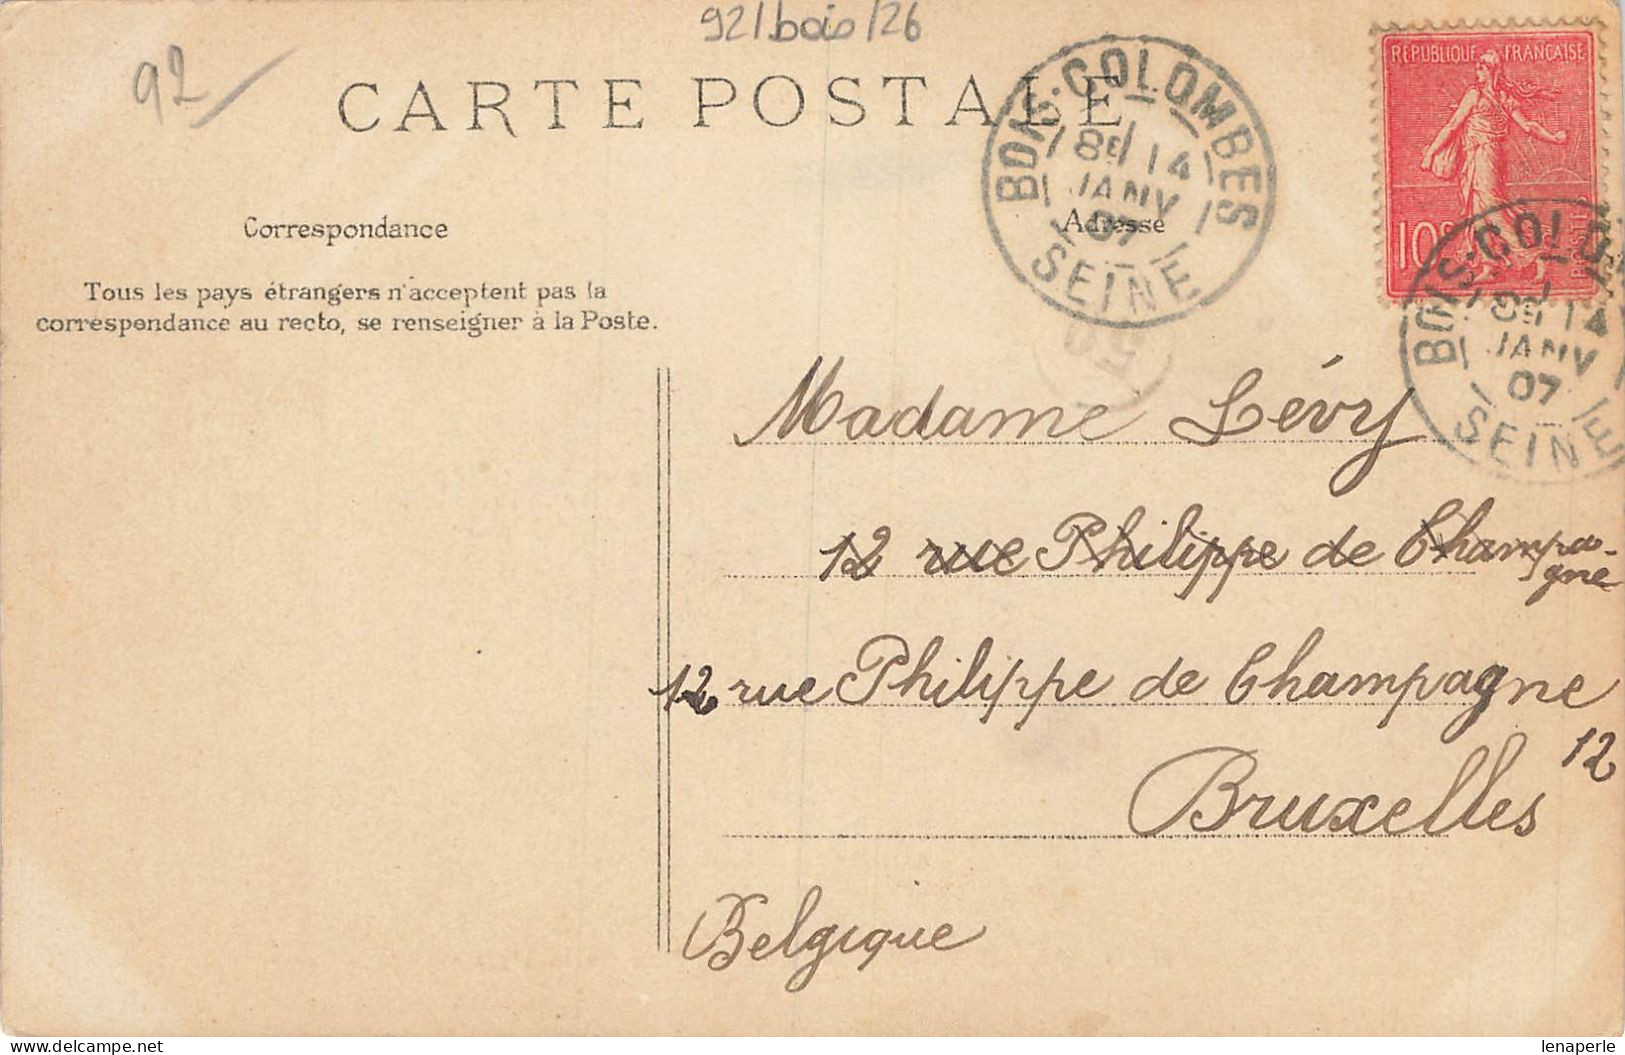 92/bois/26
92
CARTE POSTALE
BOIS-COLOMBES
8E 14
JANV
07
SEINE
REPUBLIQUE FRANÇAISE
10c
POSTES
Correspondance
Adresse
Tous les pays étrangers n'acceptent pas la
correspondance au recto, se renseigner à la Poste.
BOIS-COLOMBES
8E 14
JANV
07
SEINE
Madame Lévy
12 rue Philippe de Champa-
gne
12 rue Philippe de Champagne
12
Bruxelles
Belgique
lenaperle